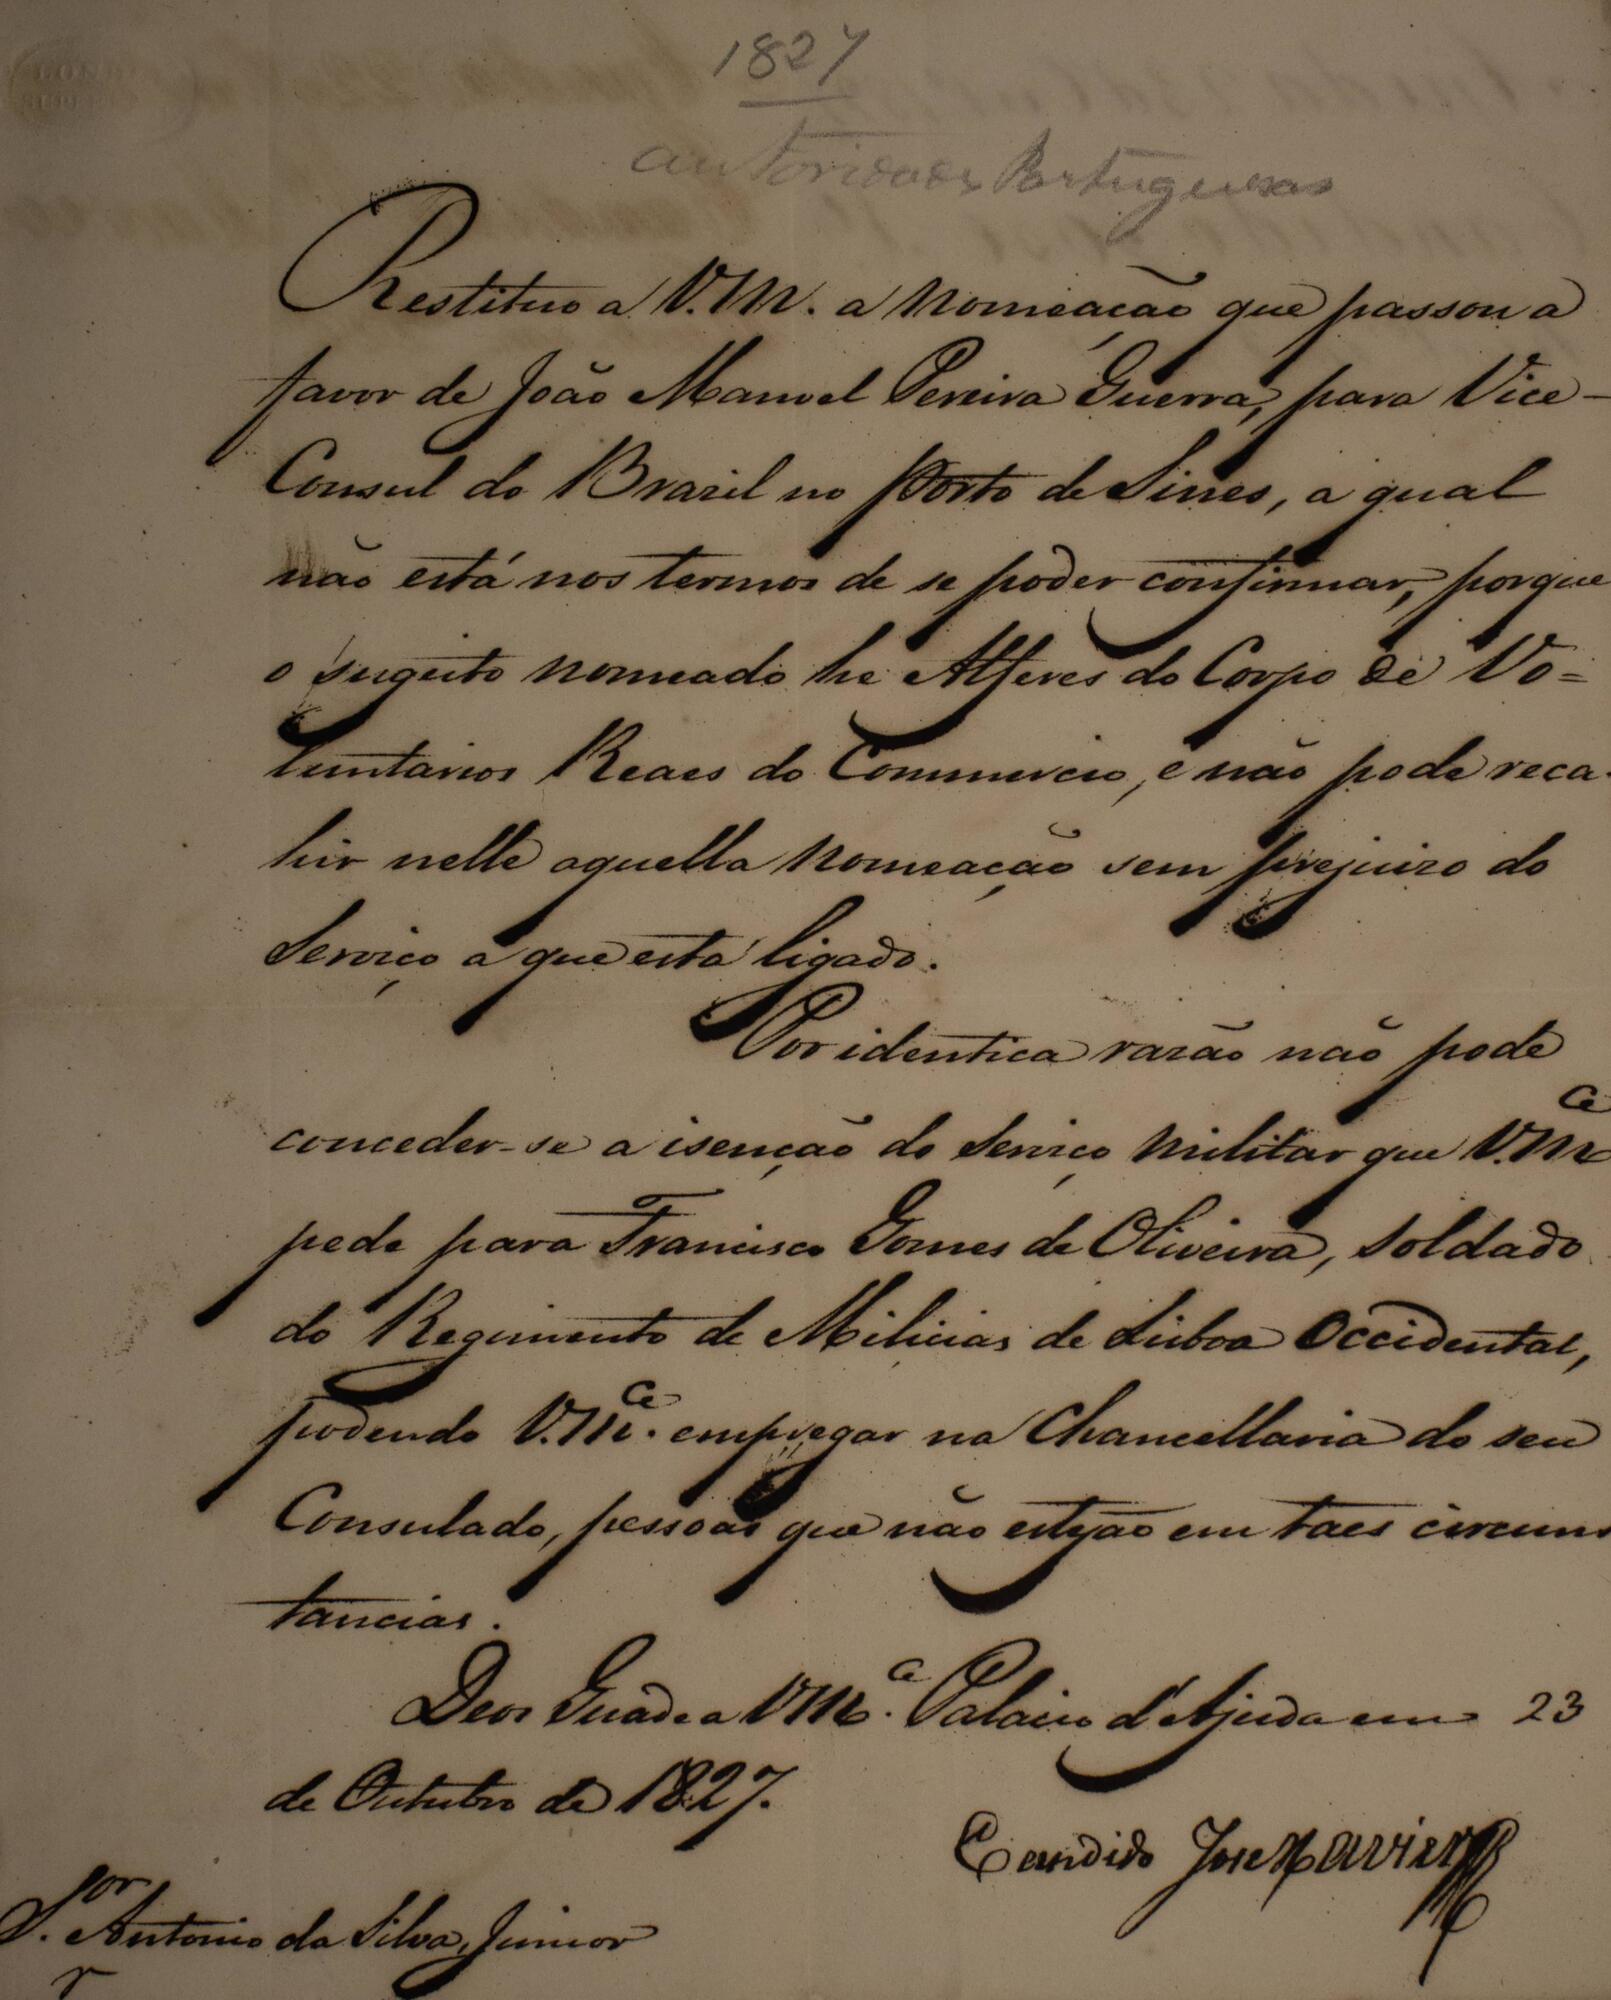 1827
autoridades Portuguesas
Restituo a V.M. a nomeação que passou a
favor de João Manoel Pereira Guerra, para Vice-
Consul do Brazil no Porto de Sines, a qual
não está nos termos de se poder confirmar, porque
o sugeito nomeado he Alferes do Corpo de Vo=
luntarios Reaes do Commercio, e não pode reca-
hir nelle aquella nomeação sem prejuizo do
Serviço a que está ligado.
Por identica razão não pode
conceder-se a isenção do Serviço Militar que V.M.ce
pede para Francisco Gomes de Oliveira, soldado
do Regimento de Milicias de Lisboa Occidental,
podendo V.M.ce empregar na Chancellaria do seu
Consulado, pessoas que não estejão em taes circuns
tancias.
Deos Guarde a V.M.ce Palacio d'Ajuda em 23
de Outubro de 1827.
Candido José Xavier
S.or Antonio da Silva Junior